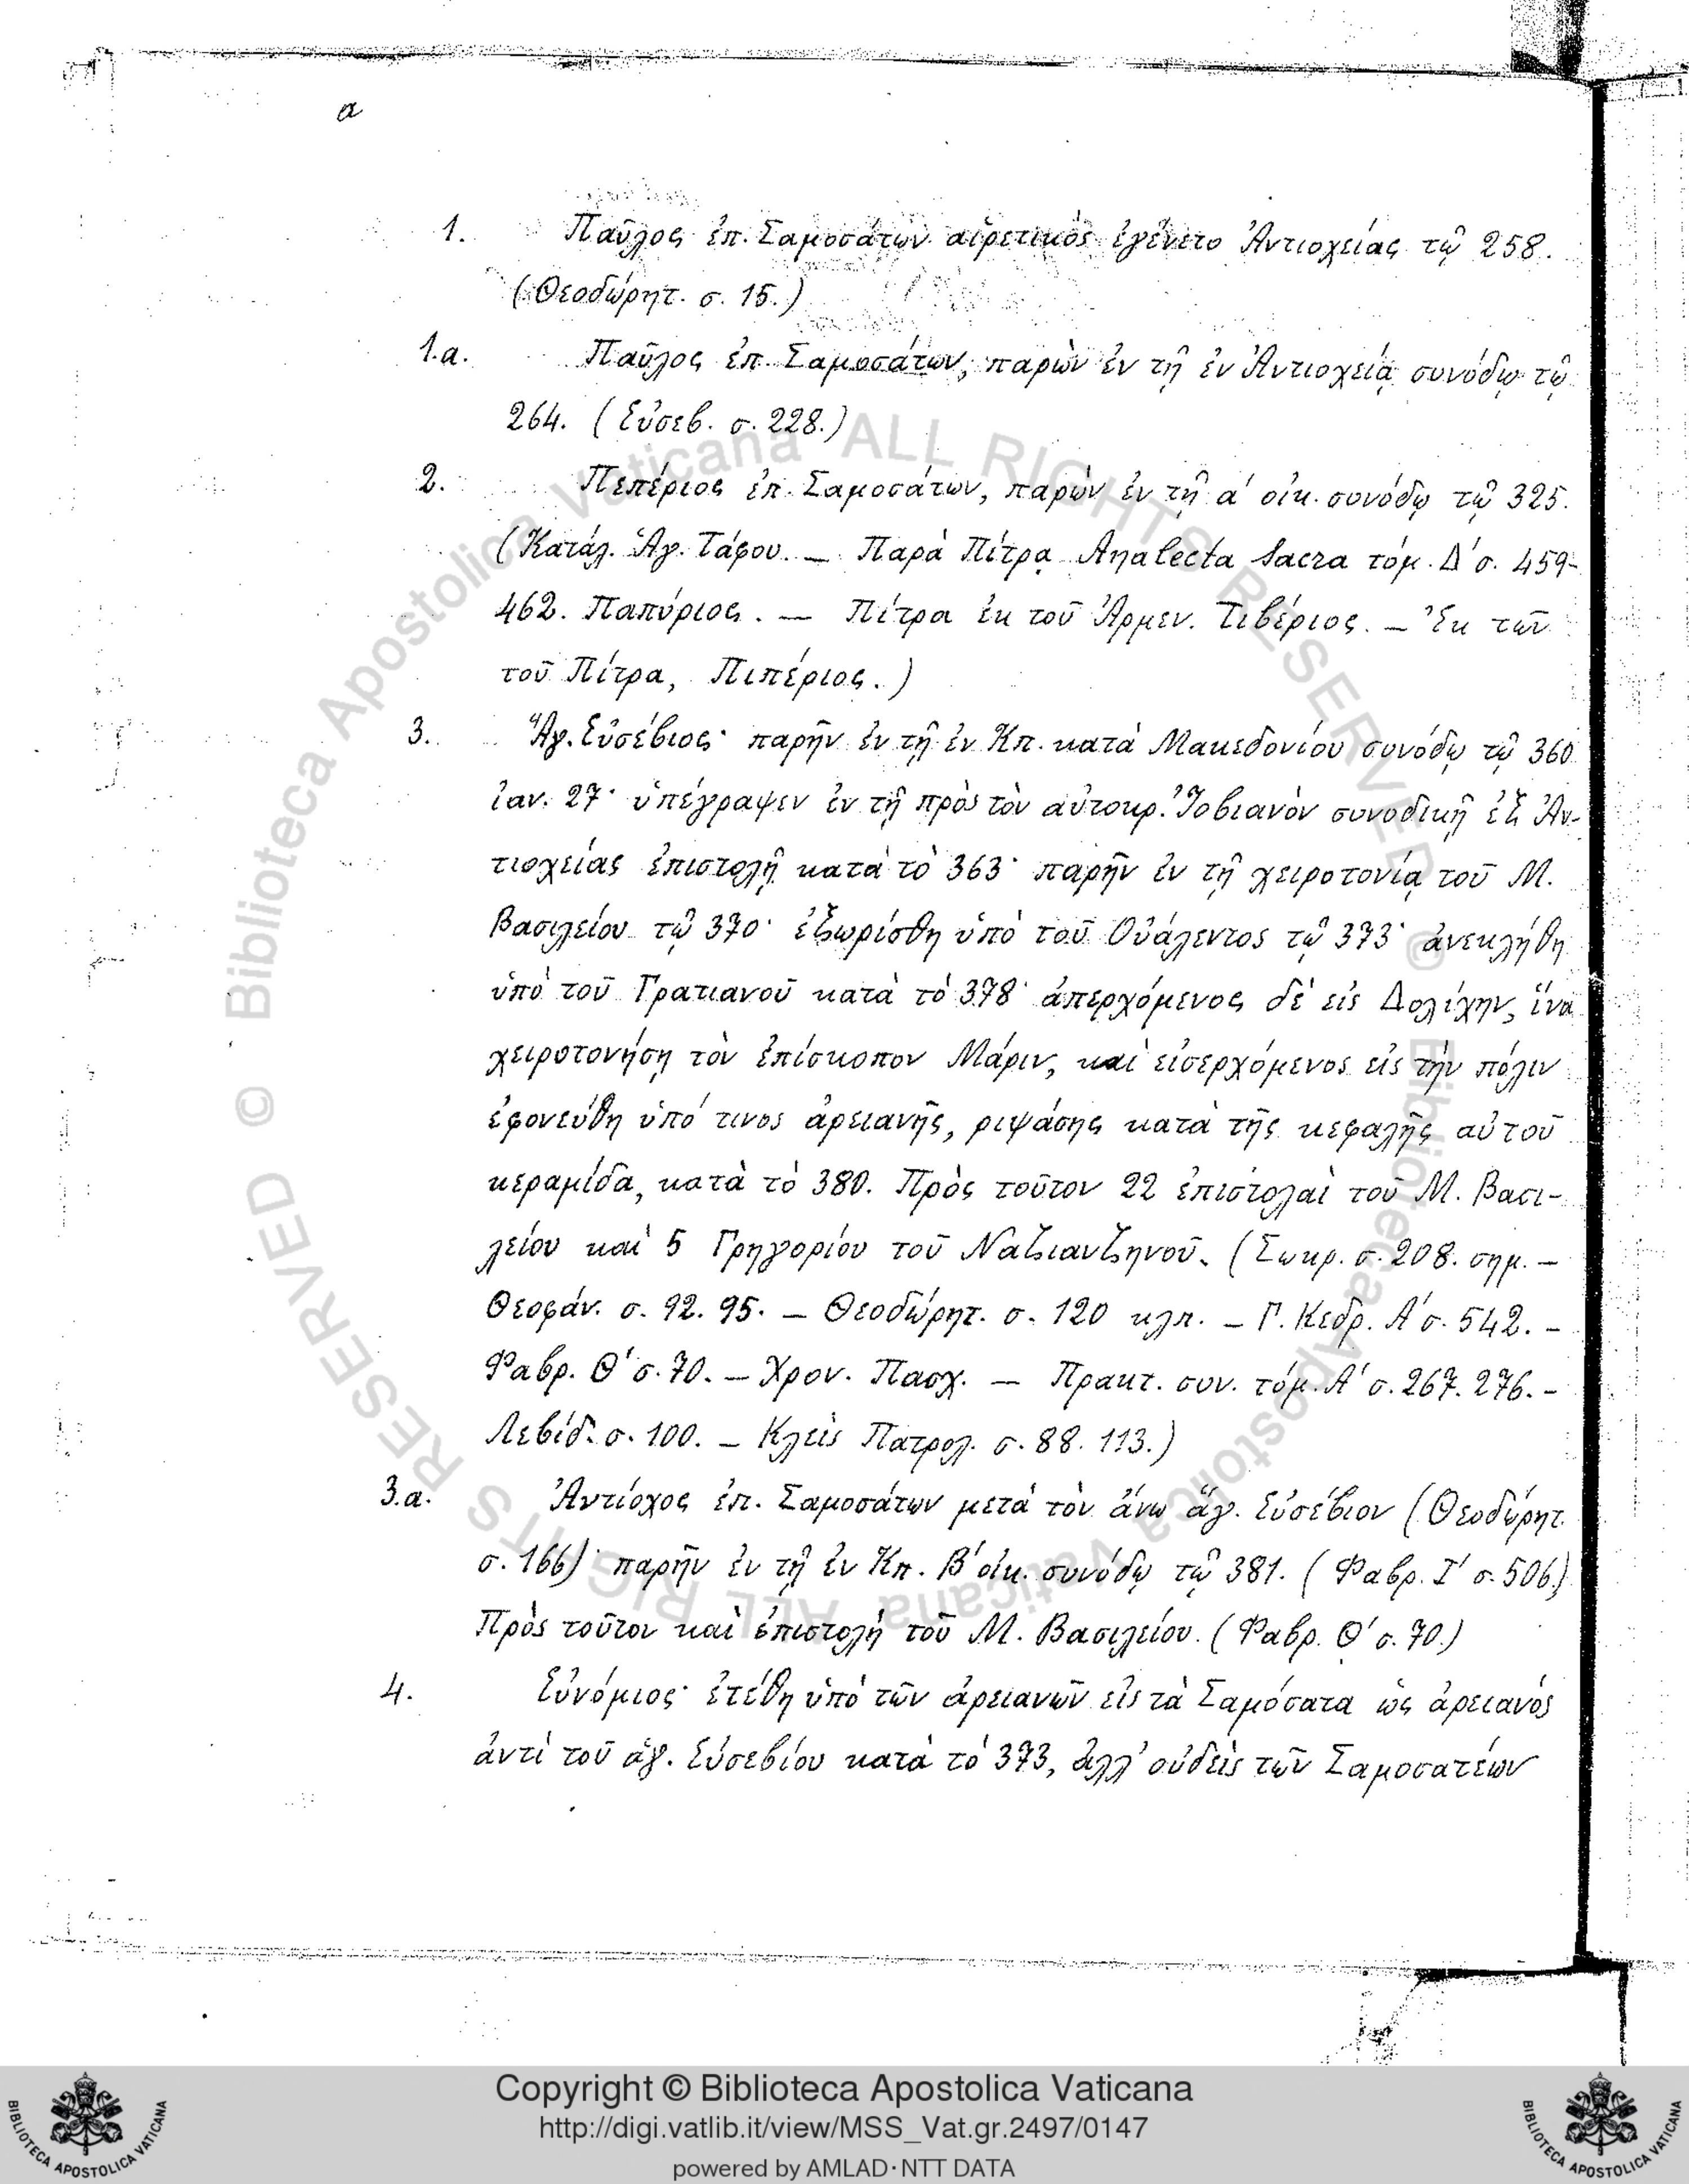 α
1. Παῦλος ἐπ. Σαμοσάτων αἱρετικὸς ἐγένετο Ἀντιοχείας τῷ 258.
(Θεοδώρητ. σ. 15.)
1.α. Παῦλος ἐπ. Σαμοσάτων, παρὼν ἐν τῇ ἐν Ἀντιοχείᾳ συνόδῳ τῷ
264. (Εὐσεβ. σ. 228.)
2. Πεπέριος ἐπ. Σαμοσάτων, παρὼν ἐν τῇ α΄ οἰκ. συνόδῳ τῷ 325.
(Κατάλ. Ἁγ. Τάφου. — Παρὰ Πίτρᾳ Analecta Sacra τόμ. Δ΄ σ. 459-
462. Παπύριος. — Πίτρα ἐκ τοῦ Ἀρμεν. Τιβέριος. — Ἐκ τῶν
τοῦ Πίτρα, Πιπέριος.)
3. Ἅγ. Εὐσέβιος· παρῆν ἐν τῇ ἐν Κπ. κατὰ Μακεδονίου συνόδῳ τῷ 360
ἰαν. 27· ὑπέγραψεν ἐν τῇ πρὸς τὸν αὐτοκρ. Ἰοβιανὸν συνοδικῇ ἐξ Ἀν-
τιοχείας ἐπιστολῇ κατὰ τὸ 363· παρῆν ἐν τῇ χειροτονίᾳ τοῦ Μ.
Βασιλείου τῷ 370· ἐξωρίσθη ὑπὸ τοῦ Οὐάλεντος τῷ 373· ἀνεκλήθη
ὑπὸ τοῦ Γρατιανοῦ κατὰ τὸ 378· ἀπερχόμενος δὲ εἰς Δολίχην, ἵνα
χειροτονήσῃ τὸν ἐπίσκοπον Μάριν, καὶ εἰσερχόμενος εἰς τὴν πόλιν
ἐφονεύθη ὑπό τινος ἀρειανῆς, ριψάσης κατὰ τῆς κεφαλῆς αὐτοῦ
κεραμίδα, κατὰ τὸ 380. Πρὸς τοῦτον 22 ἐπιστολαὶ τοῦ Μ. Βασι-
λείου καὶ 5 Γρηγορίου τοῦ Ναζιανζηνοῦ. (Σωκρ. σ. 208. σημ. —
Θεοφάν. σ. 92. 95. — Θεοδώρητ. σ. 120 κλπ. — Γ. Κεδρ. Α΄ σ. 542. —
Φαβρ. Θ΄ σ. 70. — Χρον. Πασχ. — Πρακτ. συν. τόμ. Α΄ σ. 267. 276. —
Λεβίδ. σ. 100. — Κλεὶς Πατρολ. σ. 88. 113.)
3.α. Ἀντίοχος ἐπ. Σαμοσάτων μετὰ τὸν ἄνω ἅγ. Εὐσέβιον (Θεοδώρητ.
σ. 166)· παρῆν ἐν τῇ ἐν Κπ. Β΄ οἰκ. συνόδῳ τῷ 381. (Φαβρ. Ι΄ σ. 506.)
Πρὸς τοῦτον καὶ ἐπιστολὴ τοῦ Μ. Βασιλείου. (Φαβρ. Θ΄ σ. 70.)
4. Εὐνόμιος· ἐτέθη ὑπὸ τῶν ἀρειανῶν εἰς τὰ Σαμόσατα ὡς ἀρειανὸς
ἀντὶ τοῦ ἁγ. Εὐσεβίου κατὰ τὸ 373, ἀλλ' οὐδεὶς τῶν Σαμοσατέων
© Biblioteca Apostolica Vaticana ALL RIGHTS RESERVED © Biblioteca Apostolica Vaticana ALL RIGHTS RESERVED
Copyright © Biblioteca Apostolica Vaticana
http://digi.vatlib.it/view/MSS_Vat.gr.2497/0147
powered by AMLAD·NTT DATA
BIBLIOTECA APOSTOLICA VATICANA
BIBLIOTECA APOSTOLICA VATICANA